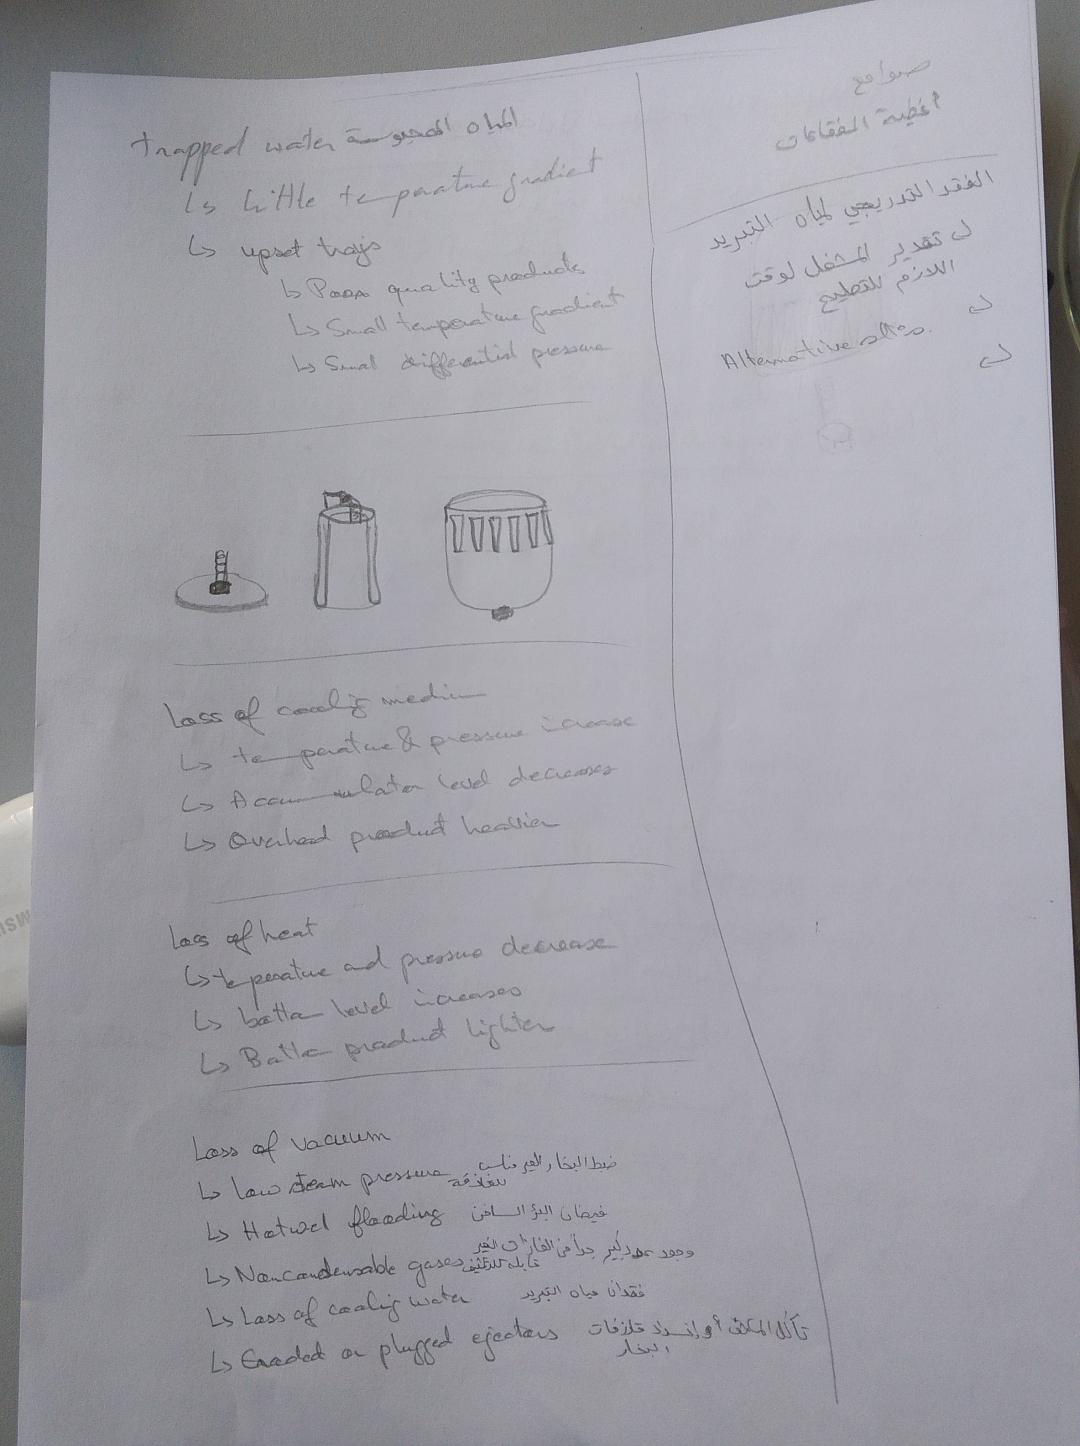 صوامع
أغطية الفقاعات
trapped water المياه المحبوسة
↳ Little temperature gradient
↳ upset trays
↳ Poor quality products
↳ Small temperature gradient
↳ Small differential pressure
الفقد التدريجي لمياه التبريد
تقدير المشغل لوقت
اللازم للتصليح
Alternative
Loss of cooling medium
↳ temperature & pressure increase
↳ Accumulator level decreases
↳ Overhead product heavier
Loss of heat
↳ temperature and pressure decrease
↳ bottom level increases
↳ Bottom product lighter
Loss of vacuum
↳ low steam pressure ضغط البخار الغير مناسب
للقاذفة
↳ Hotwel flooding فيضان البئر الساخن
↳ Noncondensable gases وجود عدد كبير جداً من الغازات الغير
قابلة للتكثيف
↳ Loss of cooling water فقدان مياه التبريد
↳ Eroded or plugged ejectors تآكل المكثف أو إنسداد قاذفات
البخار